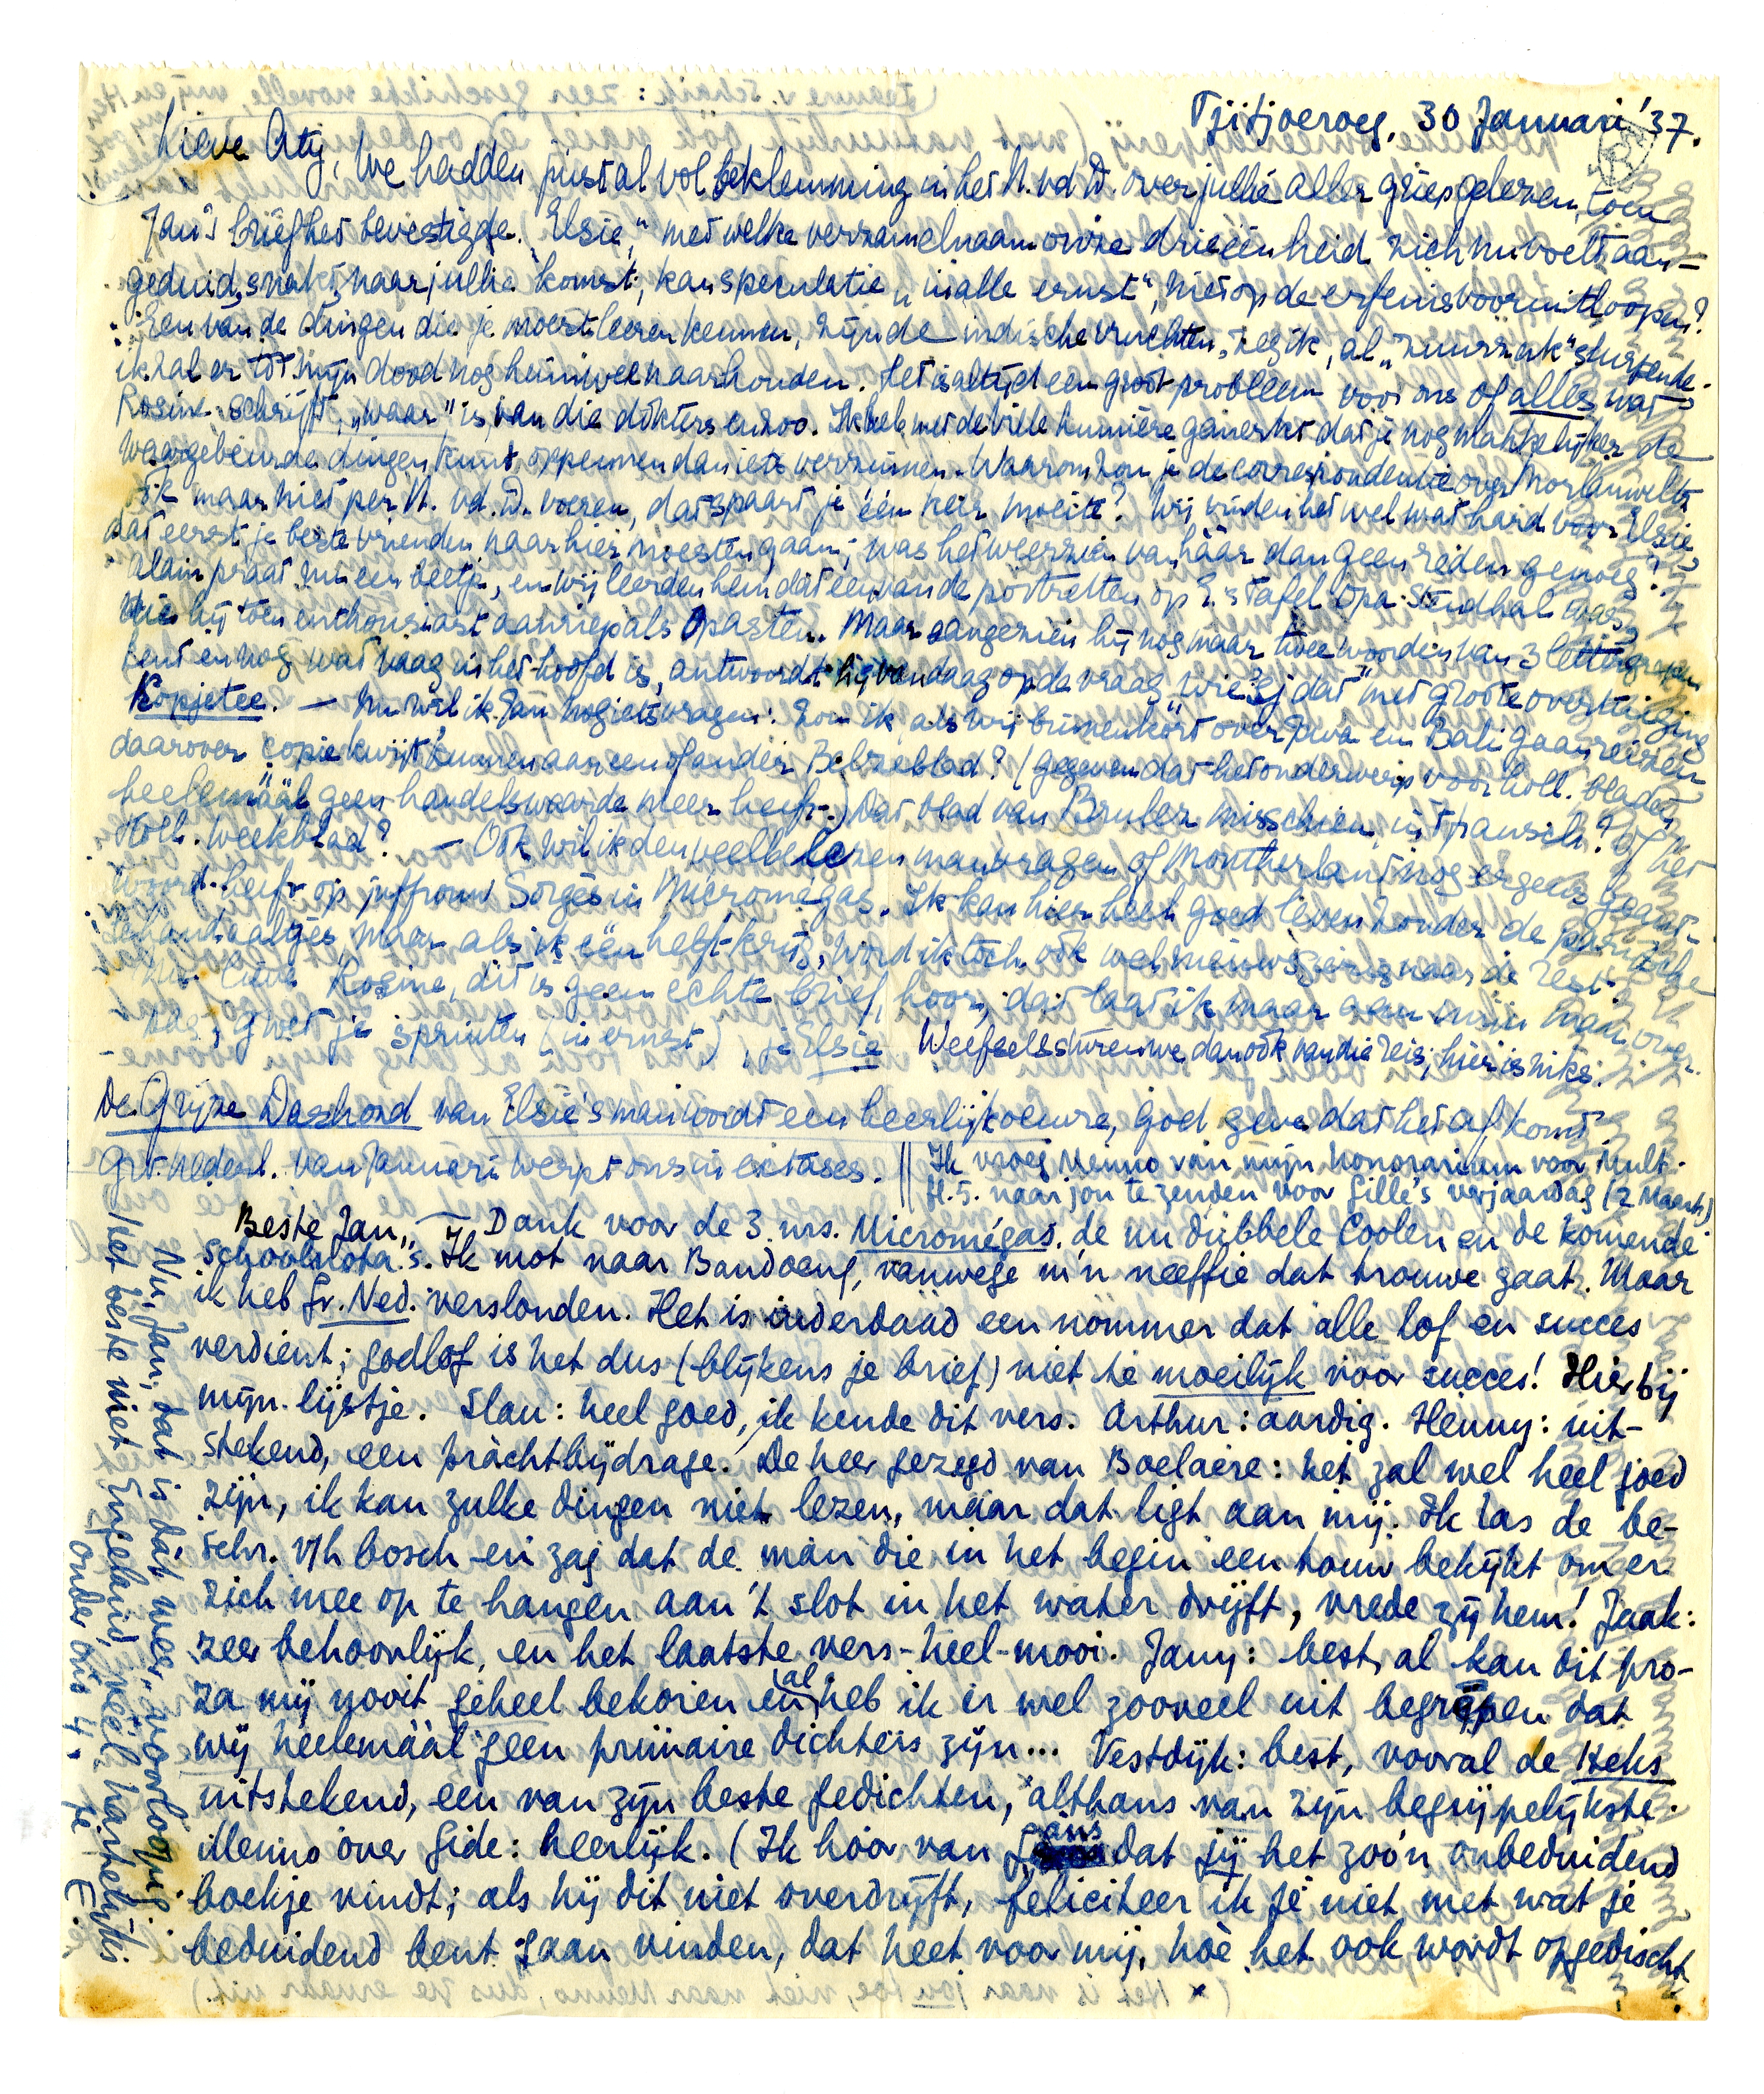 Tjitjoeroeg, 30 Januari '37.
Lieve Aty, We hadden juist al vol beklemming in het N. vd D. over jullie aller griep gelezen, toen
Jan's brief het bevestigde. "Elsie," met welke verzamelnaam onze drieëenheid zich nu voelt aan-
geduid, snakt naar jullie komst; kan speculatie "in alle ernst", niet op de erfenis vooruitloopen?
Een van de dingen die je moest leeren kennen, zijn de indische vruchten, zeg ik, al "zuurzak" slurpende.
ik zal er tot mijn dood nog heimwee naar houden. Het is altijd een groot probleem voor ons of alles wat
Rosine schrijft, "waar" is, van die dokters enzoo. Ik heb met de Vile humière gemerkt dat je nog makkelijker de
waargebeurde dingen kunt oppeumen dan iets verzinnen. Waarom zou je de correspondentie over Morlanwelz
ook maar niet per N. vd. D. voeren, dat spaart je één keer moeite? Wij vinden het wel wat hard voor Elsie,
dat eerst je beste vrienden naar hier moesten gaan; was het weerzien van háár dan geen reden genoeg?
Alain praat nu een beetje, en wij leerden hem dat een van de portretten op E.'s tafel Opa Stendhal was,
die hij toen enthousiast aanriep als Opasten. Maar aangezien hij nog maar twee woorden van 3 lettergrepen
kent en nog wat vaag in het hoofd is, antwoordt hij vandaag op de vraag "wie is dat" met groote overtuiging
Kopjetee. — Nu wil ik Jan nog iets vragen: Zou ik als wij binnenkort over Java en Bali gaan reizen
daarover copie kwijt kunnen aan een of ander Belzieblad? (gegeven dat het onderwerp voor holl. bladen
heelemáál geen handelswaarde meer heeft.) Dat blad van Bruler misschien, in 't fransch? of het
Holl. weekblad? — Ook wil ik den veelbelezen man vragen of Montherlant nog ergens geant-
woord heeft op juffrouw Sorgès in Micromégas. Ik kan hier heel goed leven zonder de parijsche
schandaaltjes, maar als ik één helft krijg, word ik toch ook wel nieuwsgierig naar de rest.
Nu lieve Rosine, dit is geen echte brief, hoor, dat laat ik maar aan mijn man over.
Dag, groet je spruiten (in ernst), je Elsie Weefsels sturen we dan ook van die reis; hier is niks.
De Grijze Dashond van Elsie's man wordt een heerlijk oeuvre, god geve dat het af komt
Grt. Nederl. van Januari werpt ons in extases. || Ik vroeg Menno van mijn honorarium voor Mult.
H.5. naar jou te zenden voor Gille's verjaardag (2 Maart)
Beste Jan, — Dank voor de 3 nrs. Micromégas, de nu dubbele Coolen en de komende
schoolnota's. Ik mot naar Bandoeng, vanwege m'n neeffie dat trouwe gaat. Maar
ik heb Gr. Ned. verslonden. Het is inderdaad een nommer dat alle lof en succes
verdient; godlof is het dus (blijkens je brief) niet te moeilijk voor succes! Hierbij
mijn lijstje. Slau: heel goed, ik kende dit vers. Arthur: aardig. Henny: uit-
stekend, een prachtbijdrage. De heer gezegd van Boelaere: het zal wel heel goed
zijn, ik kan zulke dingen niet lezen, maar dat ligt aan mij. Ik las de be-
schr. v/h bosch en zag dat de man die in het begin een touw bekijkt om er
zich mee op te hangen aan 't slot in het water drijft, vrede zij hem! Jaak:
zeer behoorlijk, en het laatste vers heel-mooi. Jany: best, al kan dit pro-
za mij nooit geheel bekoren en al heb ik er wel zooveel uit begrepen dat
wij heelemáál geen primaire dichters zijn... Vestdijk: best, vooral de Heks
uitstekend, een van zijn beste gedichten, althans van zijn begrijpelijkste.
Menno over Gide: heerlijk. (Ik hoor van Gans dat jij het zoo'n onbeduidend
boekje vindt; als hij dit niet overdrijft, feliciteer ik je niet met wat je
beduidend bent gaan vinden, dat heet voor mij, hoe het ook wordt opgedischt
Nu, Jan, dat is dat weer, voorloopig.
Het beste met Engeland, veel hartelijks
onder ons 4. je E.